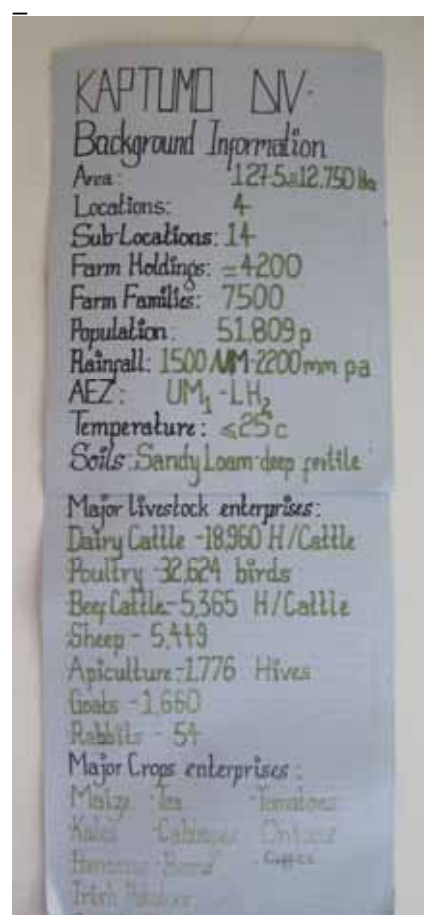 KAPTUMO DIV·
Background Information
Area: 127.5 = 12.750 Ha
Locations: 4
Sub-Locations: 14
Farm Holdings: = 4200
Farm Families: 7500
Population: 51.809 p
Rainfall: 1500 MM-2200mm pa
AEZ: UM1-LH2
Temperature: ≤25°c
Soils: Sandy Loam-deep fertile
Major livestock enterprises:
Dairy Cattle -18,960 H/Cattle
Poultry -32,624 birds
Beef Cattle-5,365 H/Cattle
Sheep - 5,449
Apiculture-1,776 Hives
Goats - 1,660
Rabbits - 54
Major Crops enterprises:
Maize Tea Tomatoes
Kales Cabbages Onions
Bananas Coffee
Irish Potatoes